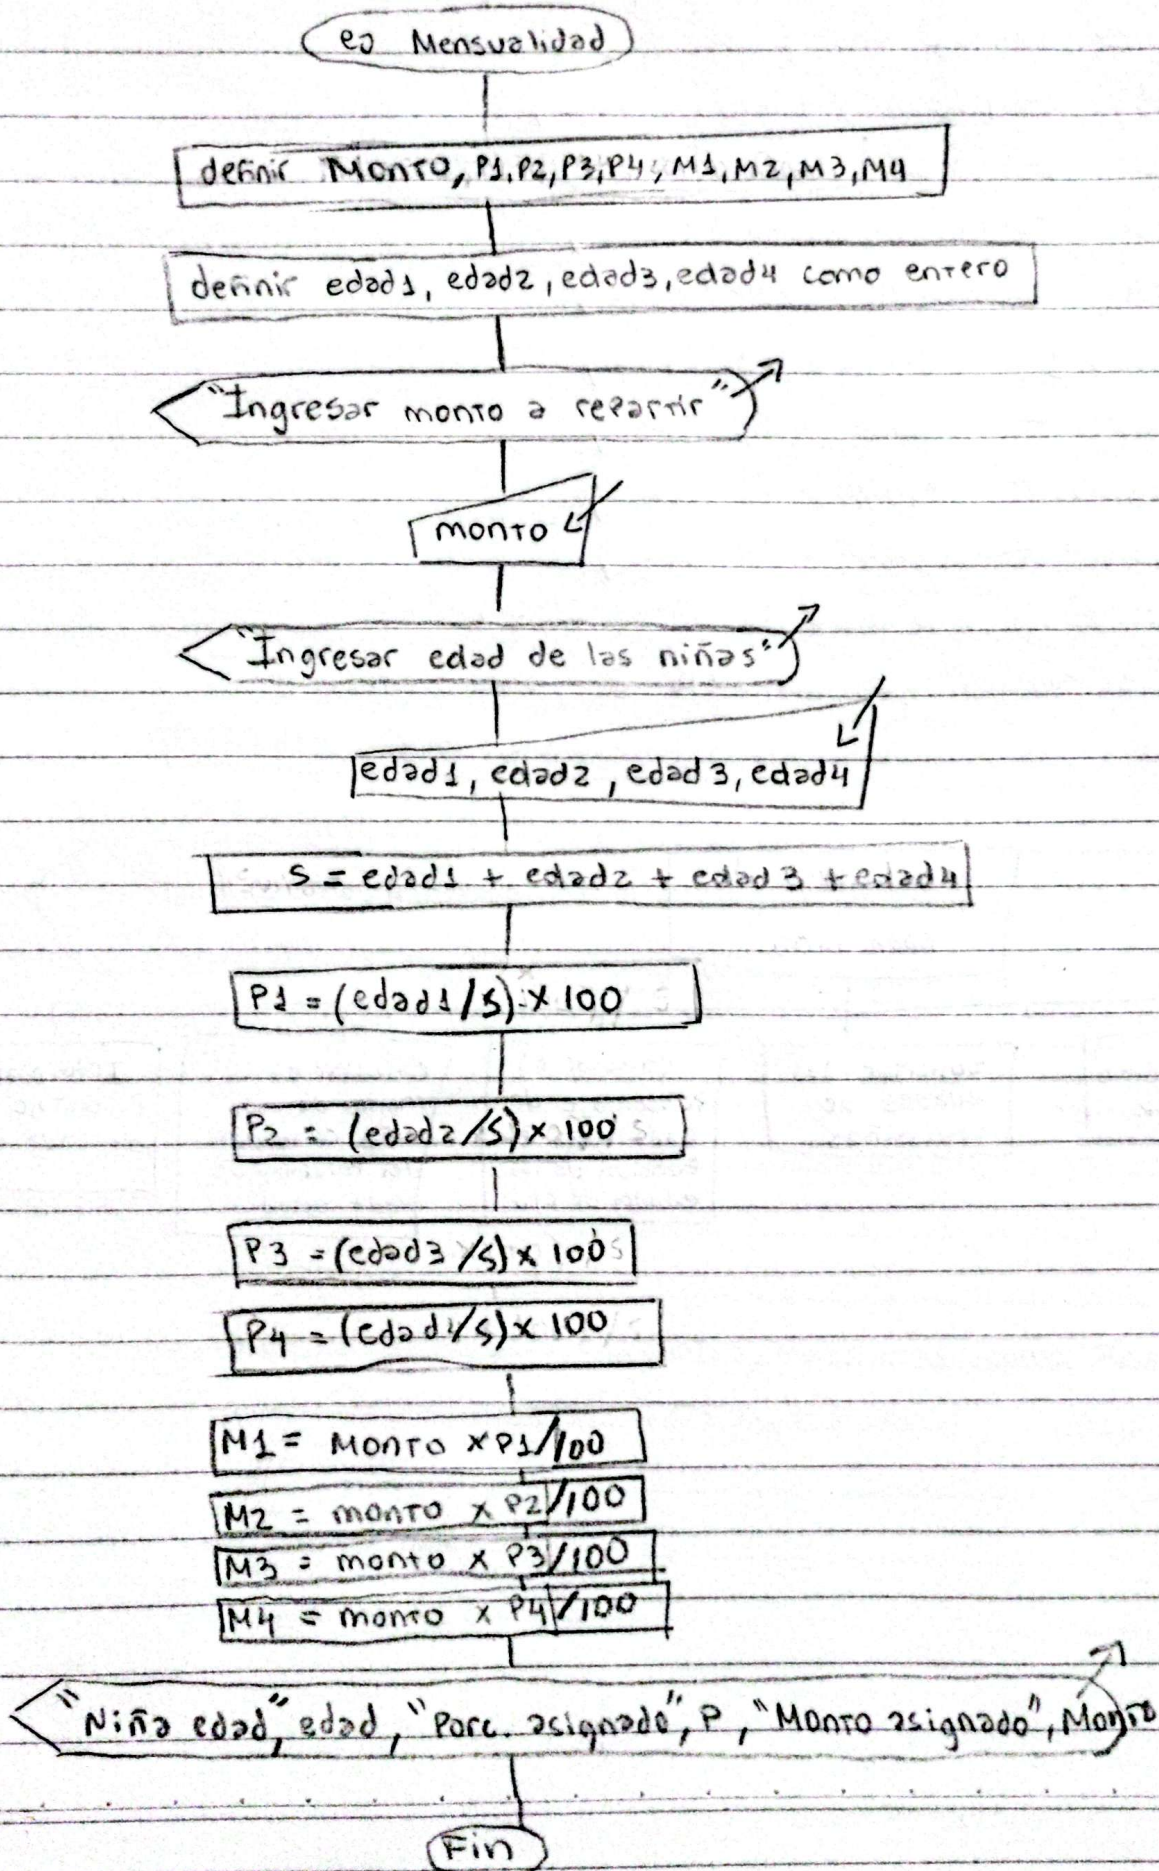 ej Mensualidad
definir Monto, P1, P2, P3, P4, M1, M2, M3, M4
definir edad1, edad2, edad3, edad4 como entero
"Ingresar monto a repartir"
monto
"Ingresar edad de las niñas"
edad1, edad2, edad3, edad4
S = edad1 + edad2 + edad3 + edad4
P1 = (edad1/S) x 100
P2 = (edad2/S) x 100
P3 = (edad3/S) x 100
P4 = (edad4/S) x 100
M1 = Monto x P1/100
M2 = monto x P2/100
M3 = monto x P3/100
M4 = monto x P4/100
"Niña edad", edad, "Porc. asignado", P, "Monto asignado", Monto
Fin